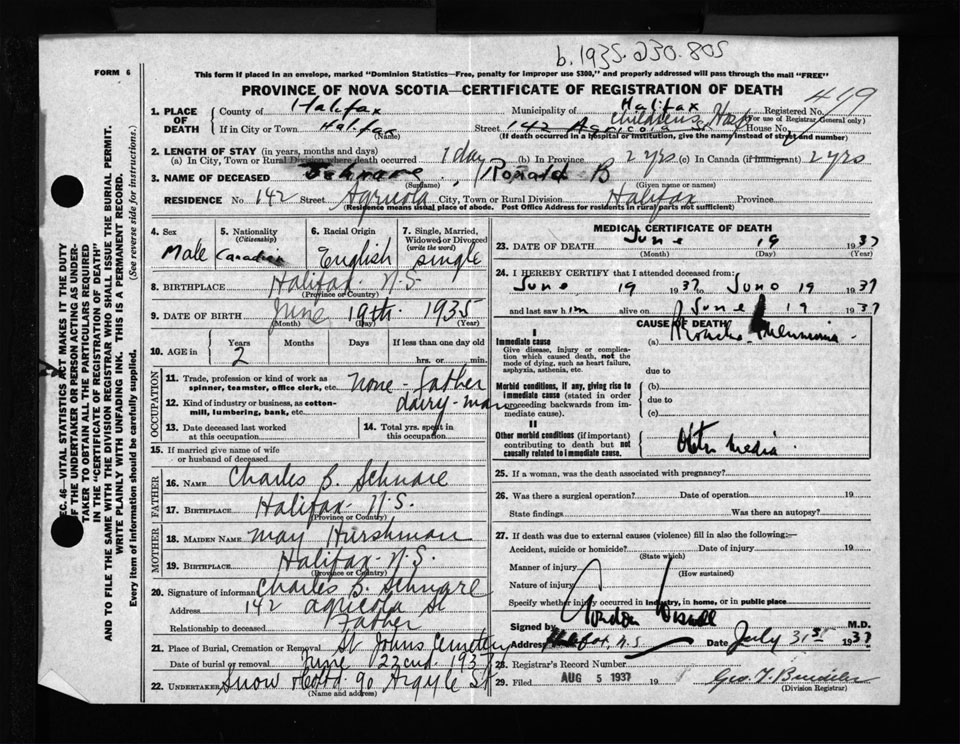 b. 1935. 230. 805
FORM 6
This form if placed in an envelope, marked "Dominion Statistics—Free, penalty for improper use $300," and properly addressed will pass through the mail "FREE"
PROVINCE OF NOVA SCOTIA—CERTIFICATE OF REGISTRATION OF DEATH
1. PLACE OF DEATH County of Halifax Municipality of Halifax Registered No. 419
(For use of Registrar General only)
If in City or Town Halifax (Name) Street 142 Agricola St Children's Hosp House No.
(If death occurred in a hospital or institution, give the name instead of street and number)
2. LENGTH OF STAY (in years, months and days)
(a) In City, Town or Rural Division where death occurred 1 day (b) In Province 2 yrs (c) In Canada (if immigrant) 2 yrs
3. NAME OF DECEASED Schnare, Ronald B
(Surname) (Given name or names)
RESIDENCE No. 142 Street Agricola City, Town or Rural Division Halifax Province
(Residence means usual place of abode. Post Office Address for residents in rural parts not sufficient)
4. Sex Male
5. Nationality (Citizenship) Canadian
6. Racial Origin English
7. Single, Married, Widowed or Divorced (write the word) single
8. BIRTHPLACE Halifax N.S.
(Province or Country)
9. DATE OF BIRTH June 19th. 1935
(Month) (Day) (Year)
10. AGE in Years 2 Months Days If less than one day old hrs. or min.
OCCUPATION
11. Trade, profession or kind of work as spinner, teamster, office clerk, etc. None - father
12. Kind of industry or business, as cotton-mill, lumbering, bank, etc. dairy-man
13. Date deceased last worked at this occupation
14. Total yrs. spent in this occupation
15. If married give name of wife or husband of deceased
FATHER
16. NAME Charles B. Schnare
17. BIRTHPLACE Halifax N.S.
(Province or Country)
MOTHER
18. MAIDEN NAME May Hurshman
19. BIRTHPLACE Halifax N.S.
(Province or Country)
20. Signature of informant Charles B. Schnare
Address 142 Agricola St
Relationship to deceased Father
21. Place of Burial, Cremation or Removal St Johns Cemetery
Date of burial or removal June 22nd 1937
22. UNDERTAKER Snow & Co 90 Argyle St
(Name and address)
MEDICAL CERTIFICATE OF DEATH
23. DATE OF DEATH June 19 1937
(Month) (Day) (Year)
24. I HEREBY CERTIFY that I attended deceased from:
June 19 1937 to June 19 1937
and last saw him alive on June 19 1937
CAUSE OF DEATH
I
Immediate cause (a) Broncho-Pneumonia
Give disease, injury or complication which caused death, not the mode of dying, such as heart failure, asphyxia, asthenia, etc.
due to
Morbid conditions, if any, giving rise to immediate cause (stated in order proceeding backwards from immediate cause).
(b)
due to
(c)
II
Other morbid conditions (if important) contributing to death but not causally related to immediate cause. Otitis media.
25. If a woman, was the death associated with pregnancy?
26. Was there a surgical operation? Date of operation 19
State findings Was there an autopsy?
27. If death was due to external causes (violence) fill in also the following:—
Accident, suicide or homicide? Date of injury 19
(State which)
Manner of injury
(How sustained)
Nature of injury
Specify whether injury occurred in industry, in home, or in public place
Signed by Gordon M.D.
Address Halifax, N.S. Date July 31st 1937
28. Registrar's Record Number
29. Filed AUG 5 1937 19 Geo. T.
(Division Registrar)
SEC. 46—VITAL STATISTICS ACT MAKES IT THE DUTY
OF THE UNDERTAKER OR PERSON ACTING AS UNDER-
TAKER TO OBTAIN ALL THE PARTICULARS REQUIRED
IN THE "CERTIFICATE OF REGISTRATION OF DEATH"
AND TO FILE THE SAME WITH THE DIVISION REGISTRAR WHO SHALL ISSUE THE BURIAL PERMIT.
WRITE PLAINLY WITH UNFADING INK. THIS IS A PERMANENT RECORD.
Every item of information should be carefully supplied. (See reverse side for instructions.)